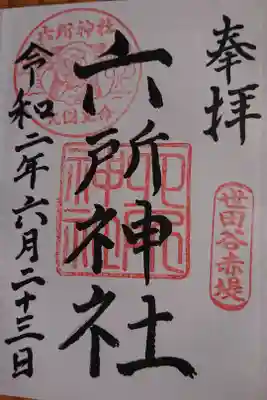 奉拝
世田谷赤堤
六所神社
六所神社
令和二年六月二十三日